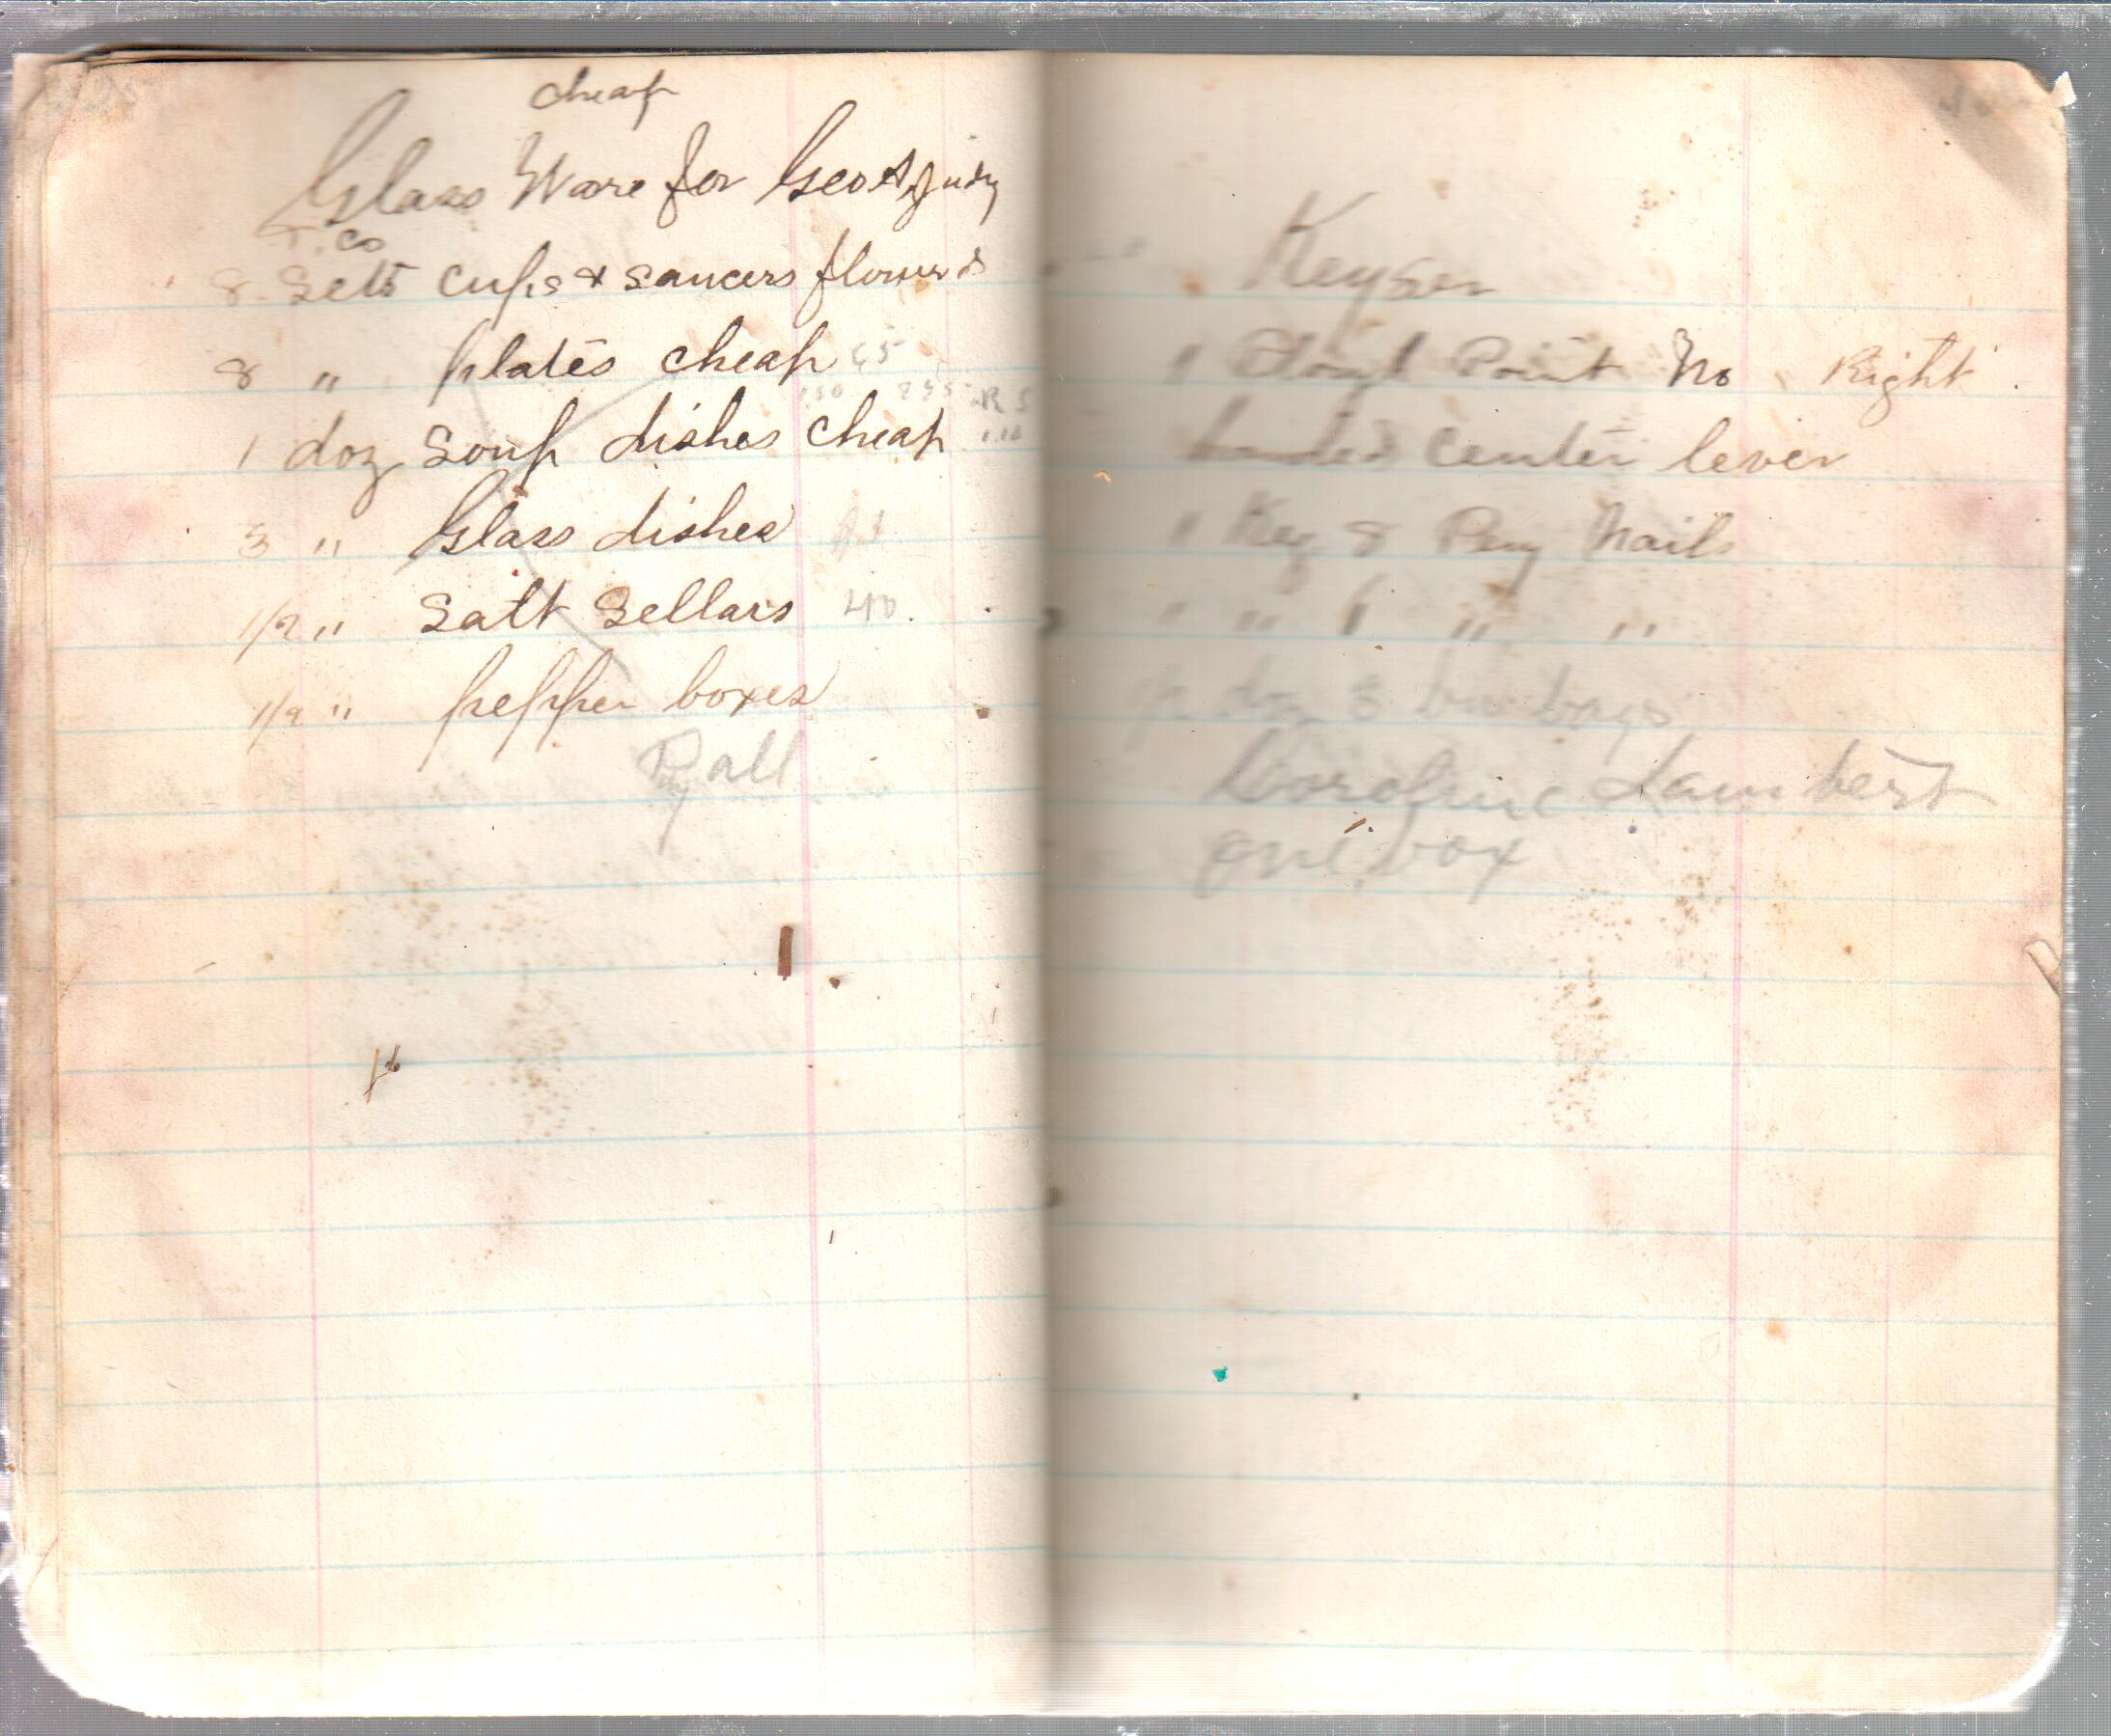 cheap
Glass Ware for Geo A Judy
& Co
8 Setts Cups & Saucers flowered
8 " plates cheap 65
1 doz Soup dishes cheap
3 " Glass dishes
1/2 " Salt Sellars 40
1/2 " pepper boxes
Ball
Keyser
" Plough Point No Right
handed Center lever
" Keg 8 Peny Nails
" " 6 " "
doz 3 bu bags
Caroline Lambert
one box